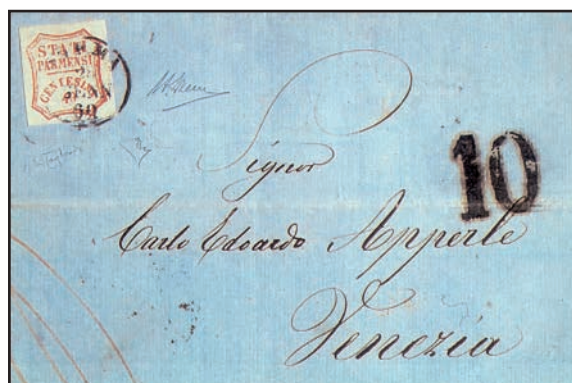 STATI
PARMENSI
CENTESIMI
GENN
60
10
Signor
Carlo Edoardo Apperle
Venezia